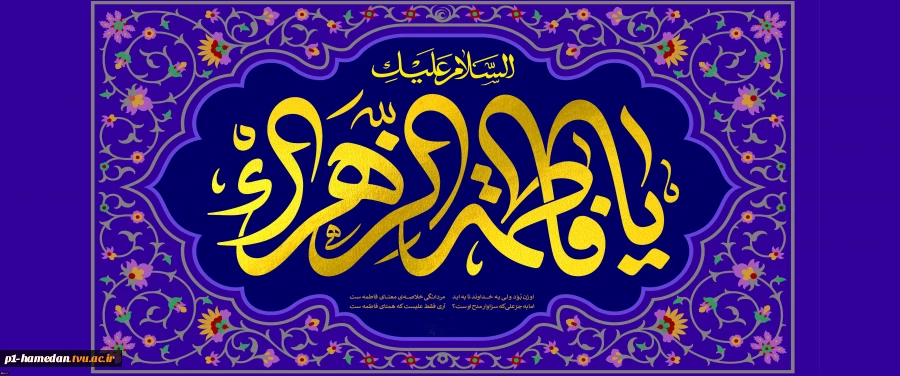 السَّلامُ عَلَيْكِ
یا فاطمة الزهراء
او زن بُوَد ولی به خداوند تا به ابد مردانگی خلاصه‌ی معنای فاطمه ست
اما به جز علی که سزاوار مدح اوست؟ آری فقط علیست که همتای فاطمه ست
p1-hamedan.tvu.ac.ir